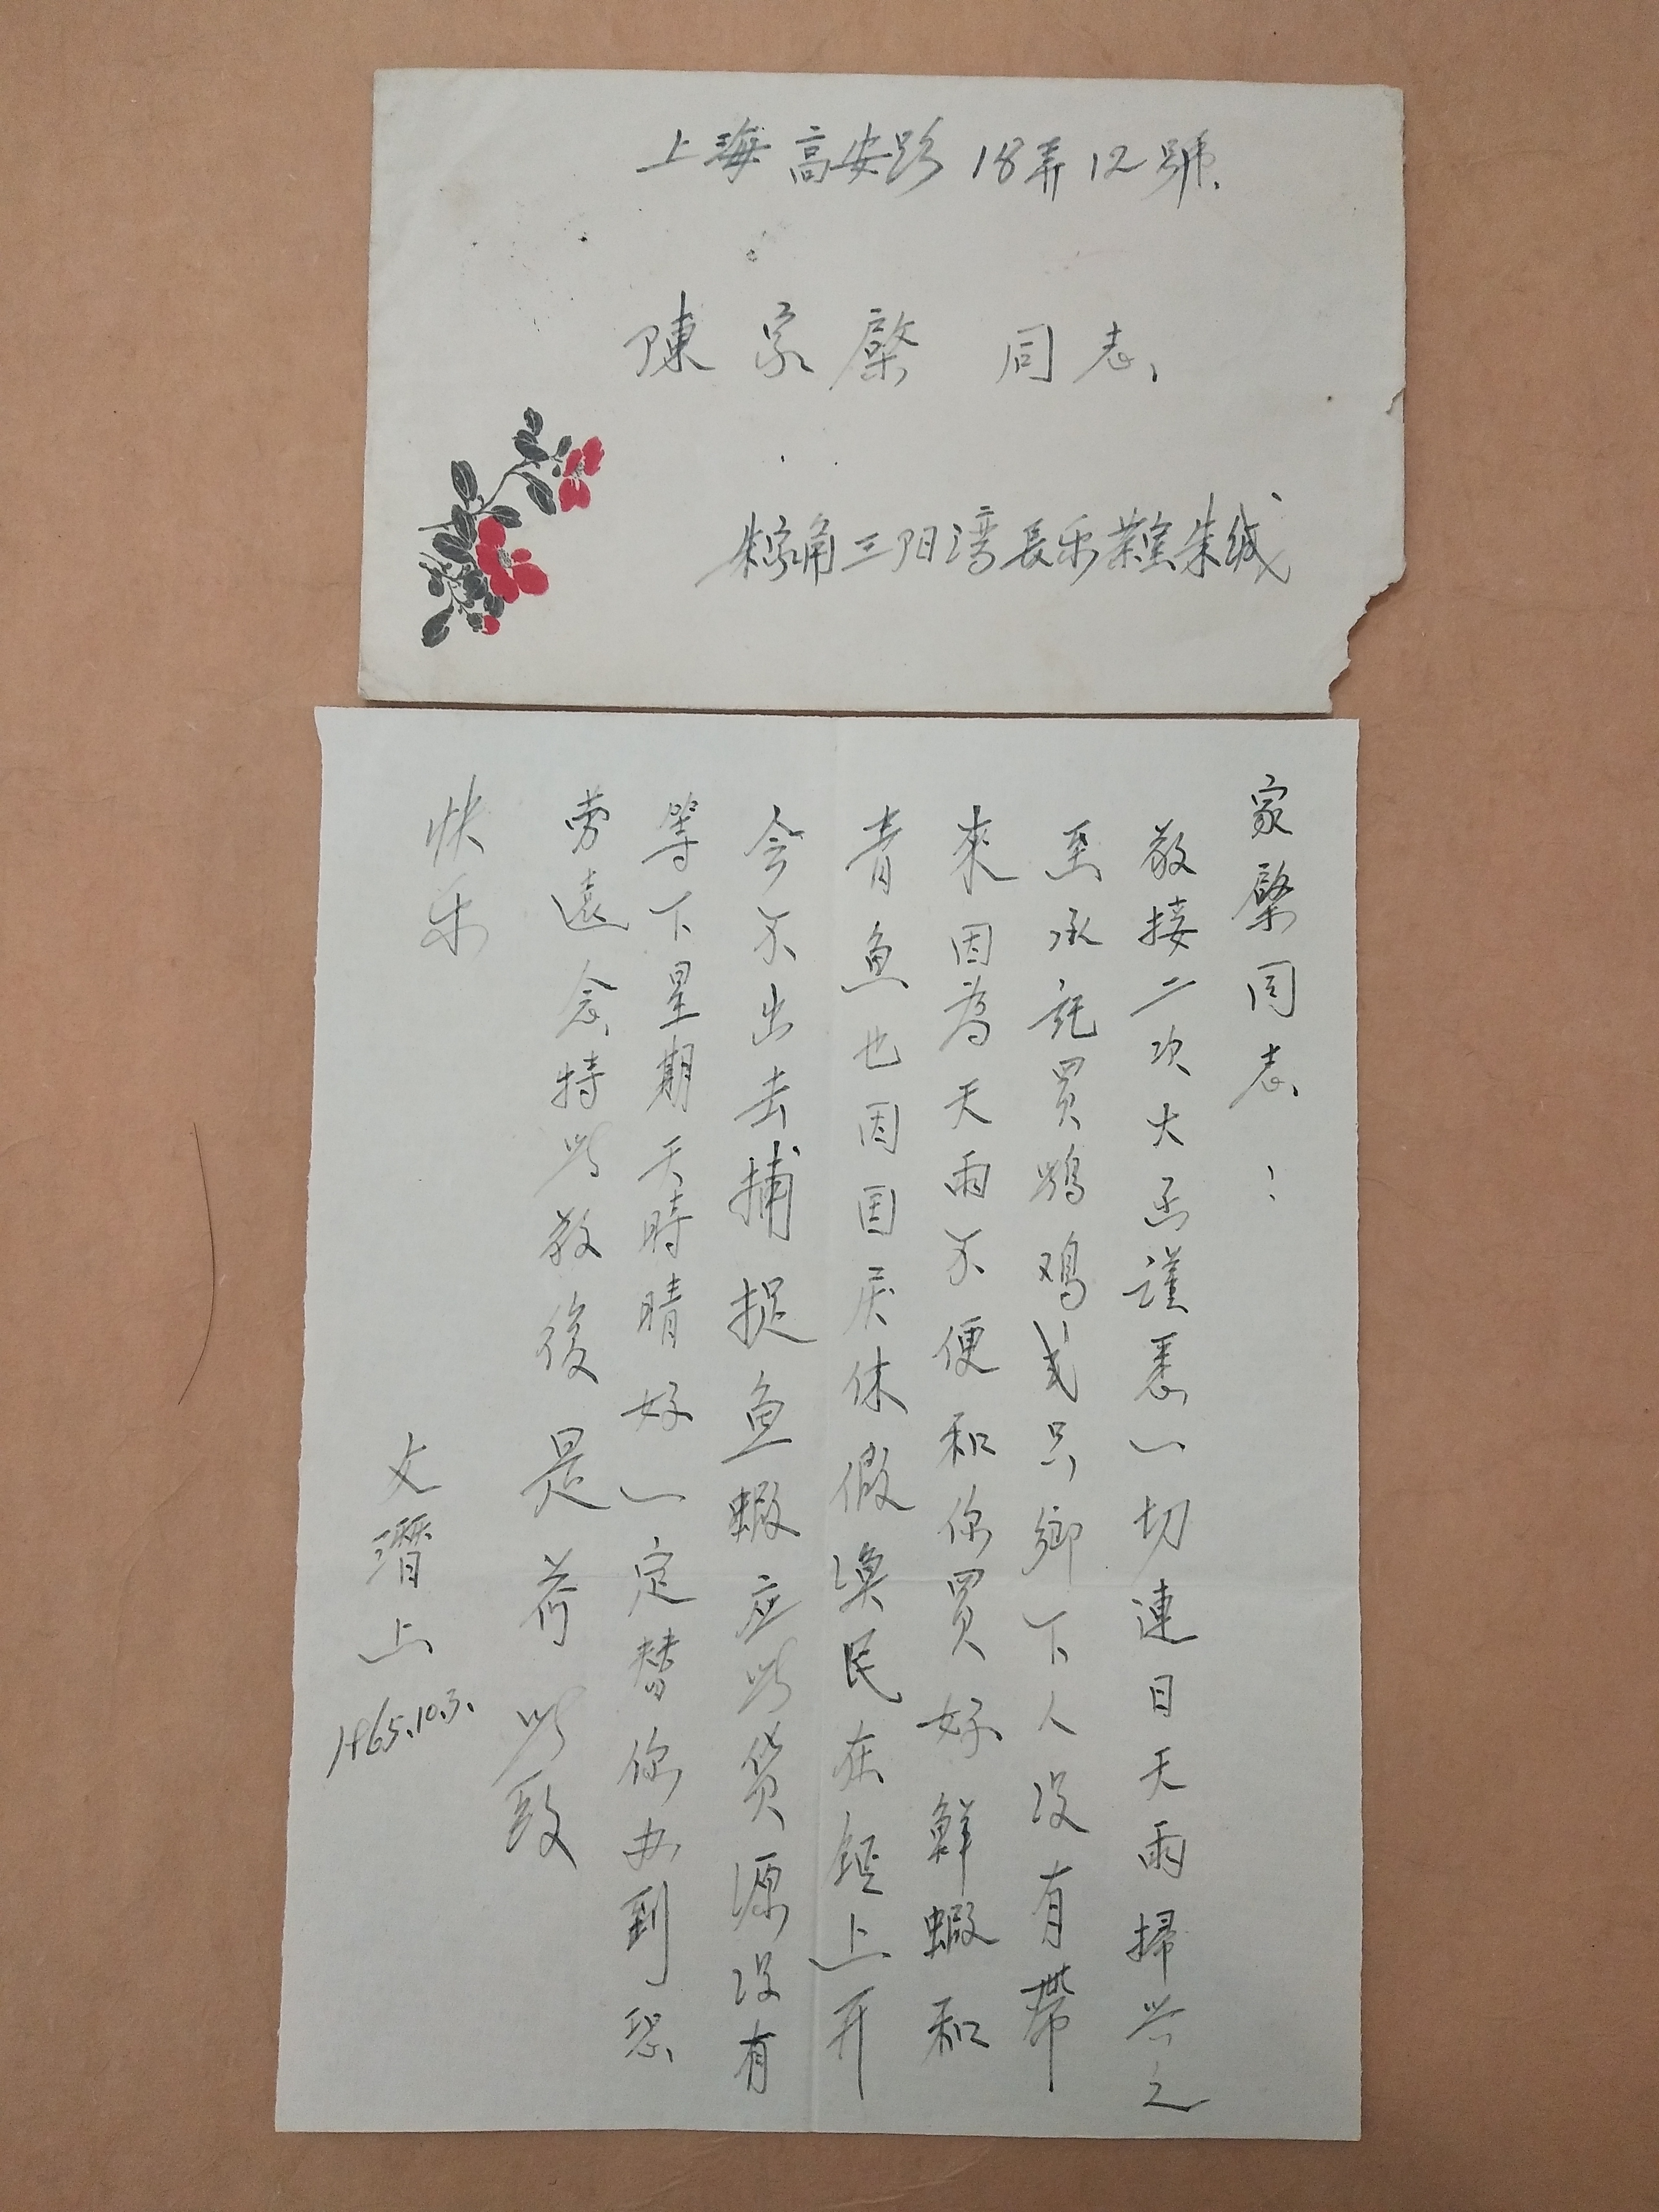 上海高安路18弄12號
陳家棨 同志
朱家角三阳湾長乐茶室朱缄
家棨同志：
敬接二次大函謹悉一切連日天雨掃兴之
至承託買鸡式只鄉下人没有帶
來因為天雨不便和你買好鮮蝦和
青魚也因国庆休假漁民在鎮上开
会不出去捕捉魚蝦应此貨源没有
等下星期天時晴好一定替你办到恐
劳遠念特此敬復是荷此致
快乐
文潛上
1965.10.3.